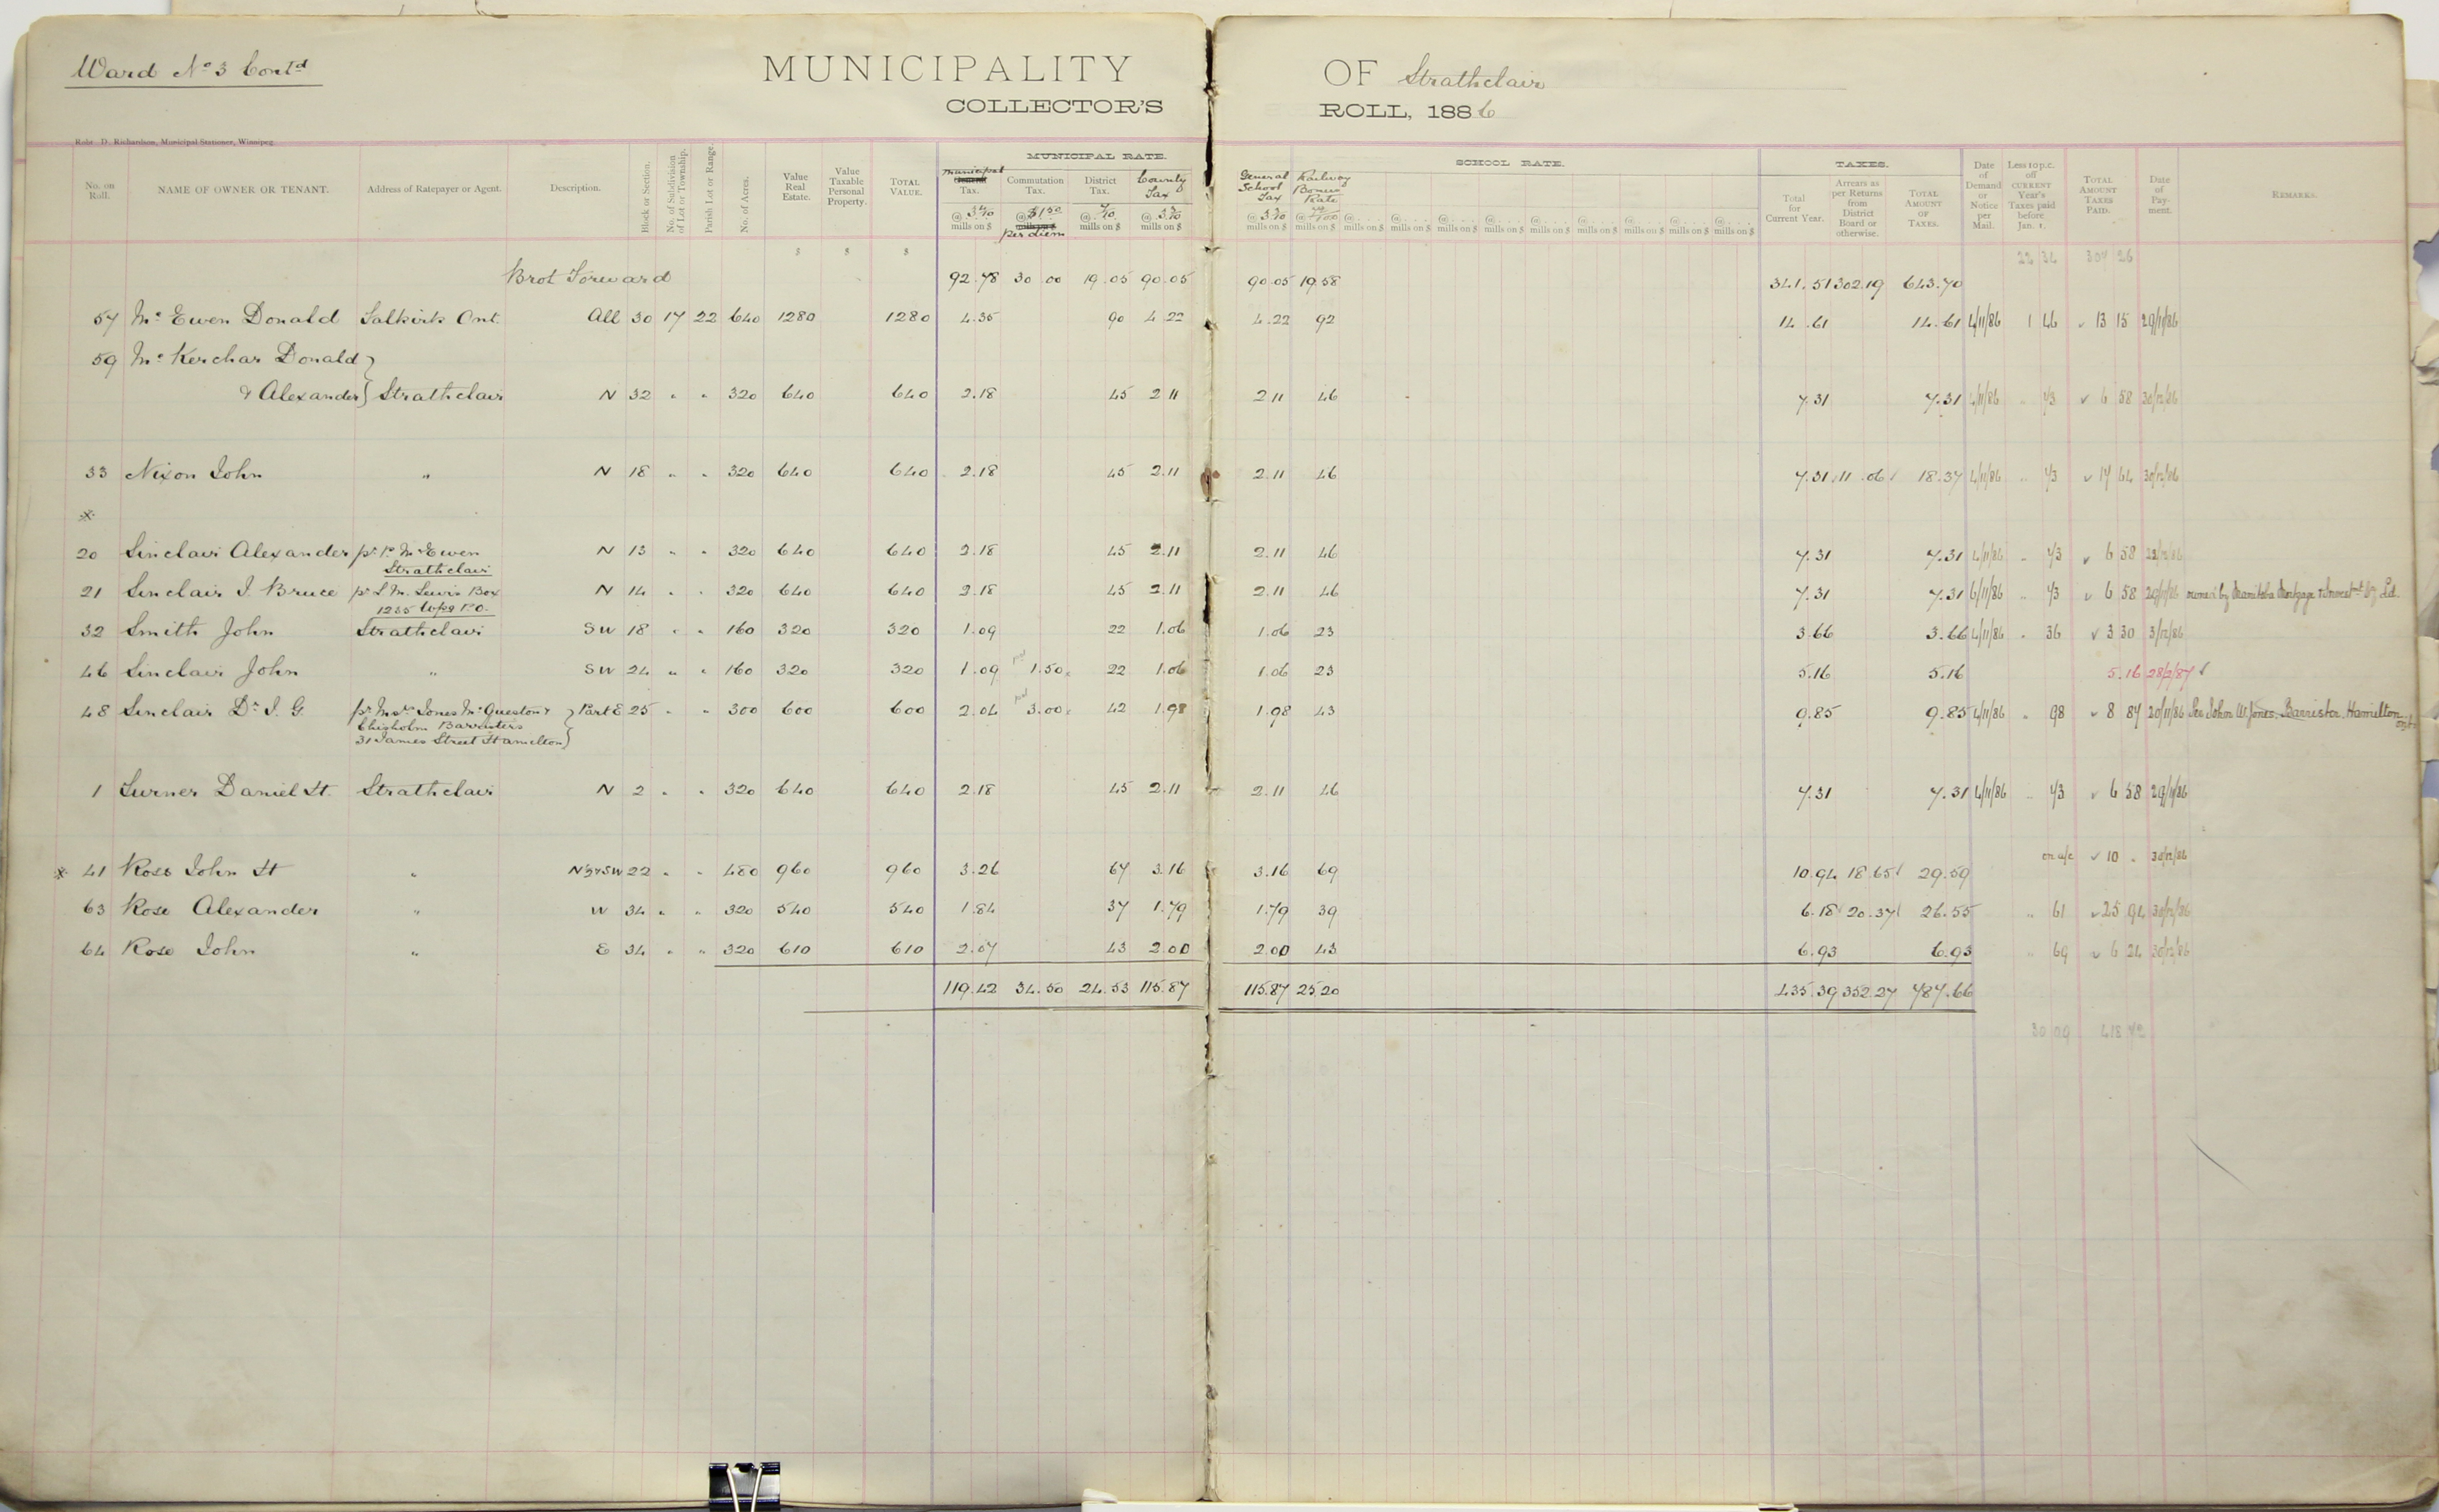 Ward No 3 Contd
MUNICIPALITY OF Strathclair
COLLECTOR'S ROLL, 1886
Robt. D. Richardson, Municipal Stationer, Winnipeg
MUNICIPAL RATE. SCHOOL RATE. TAXES.
No. on Roll. NAME OF OWNER OR TENANT. Address of Ratepayer or Agent. Description. Block or Section. No. of Subdivision of Lot or Township. Parish Lot or Range. No. of Acres. Value Real Estate. Value Taxable Personal Property. TOTAL VALUE. Municipal Tax. @ 3 4/10 mills on $ Commutation Tax. @ $1.50 per diem District Tax. @ 7/10 mills on $ County Tax @ 3 3/10 mills on $ General School Tax @ 3 3/10 mills on $ Railway Bonus Rate mills on $ Total for Current Year. Arrears as per Returns from District Board or otherwise. TOTAL AMOUNT OF TAXES. Date of Demand or Notice per Mail. Less 10 p.c. off CURRENT Year's Taxes paid before Jan. 1. TOTAL AMOUNT TAXES PAID. Date of Payment. REMARKS.
$ $ $ 22 34 307 26
Brot Forward 92.78 30 00 19.05 90.05 90.05 19.58 341.51 302.19 643.70
57 Mc Ewen Donald Salkirk Ont. All 30 17 22 640 1280 1280 4.35 90 4 22 4.22 92 14.61 14.61 4/11/86 1 46 13 15 29/11/86
59 Mc Kerchar Donald }
& Alexander } Strathclair N 32 " " 320 640 640 2.18 45 2 11 2 11 46 7.31 7.31 4/11/86 " 73 6 58 30/12/86
33 Nixon John " N 18 " " 320 640 640 2.18 45 2.11 2.11 46 7.31 11.06 18.37 4/11/86 " 73 17 64 30/12/86
*
20 Sinclair Alexander pr P. McEwen N 13 " " 320 640 640 2.18 45 2.11 2.11 46 7.31 7.31 4/11/86 " 73 6 58
Strathclair
21 Sinclair J. Bruce pr L. M. Lewis Box N 14 " " 320 640 640 2.18 45 2.11 2.11 46 7.31 7.31 6/11/86 " 73 6 58 owned by Manitoba Mortgage & Investmt Coy Ld.
1235 Wpg P.O.
32 Smith John Strathclair SW 18 " " 160 320 320 1.09 22 1.06 1.06 23 3.66 3.66 4/11/86 " 36 3 30 3/12/86
46 Sinclair John " SW 24 " " 160 320 320 1.09 1.50 22 1.06 1.06 23 5.16 5.16 5.16 28/2/87
48 Sinclair Dr J. G. pr Messrs Jones McQueston & } Part E 25 " " 300 600 600 2.04 3.00 42 1.98 1.98 43 9.85 9.85 4/11/86 " 98 8 87 20/11/86 Per John W. Jones, Barrister, Hamilton Ont.
Chisholm Barristers
31 James Street Hamilton }
1 Turner Daniel H. Strathclair N 2 " " 320 640 640 2.18 45 2.11 2.11 46 7.31 7.31 4/11/86 " 73 6 58 29/11/86
* 41 Ross John H " N½ & SW 22 " " 480 960 960 3.26 67 3.16 3.16 69 10.94 18.65 29.59 on a/c 10 " 30/12/86
63 Rose Alexander " W 34 " " 320 540 540 1.84 37 1.79 1.79 39 6.18 20.37 26.55 " 61 25 94 30/12/86
64 Rose John " E 34 " " 320 610 610 2.07 43 2.00 2.00 43 6.93 6.93 " 69 6 24 30/12/86
119.42 34.50 24.53 115.87 115.87 25.20 435.39 352.27 787.66
30 09 418 72